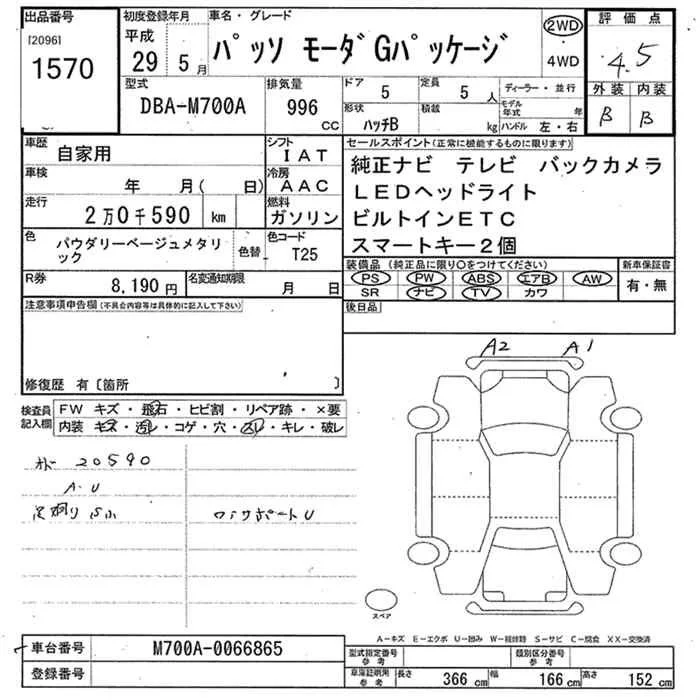 出品番号 初度登録年月 車名・グレード 2WD 4WD 評価点
[2096]
1570
平成 29 5月 パッソ モーダ Gパッケージ 4.5
型式 排気量 ドア 5 定員 5人 ディーラー・並行 外装 内装
DBA-M700A 996 CC 形状 ハッチB 積載 kg モデル年式 年 ハンドル 左・右 B B
車歴 自家用 シフト IAT セールスポイント(正常に機能するものに限ります)
車検 年 月( 日) 冷房 AAC 純正ナビ テレビ バックカメラ
走行 2万0千590 km 燃料 ガソリン LEDヘッドライト
ビルトインETC
色 パウダリーベージュメタリック 色替 色コード T25 スマートキー2個
R券 8,190円 名変通知期限 月 日 装備品(純正品に限り○をつけてください) 新車保証書
PS PW ABS エアB AW 有・無
SR ナビ TV カワ
注意事項申告欄(不具合内容等は具体的に記入して下さい) 後日品
修復歴 有〔箇所 〕
A2 A1
検査員記入欄 FW キズ・飛石・ヒビ割・リペア跡・×要
内装 キズ・汚レ・コゲ・穴・スレ・キレ・破レ
20590
A.U
ロアサポートU
スペア
A-キズ E-エクボ U-凹み W-補修跡 S-サビ C-腐食 XX-交換済
車台番号 M700A-0066865 型式指定番号 参考 類別区分番号 参考
登録番号 車庫証明用 参考 長さ 366cm 幅 166cm 高さ 152cm